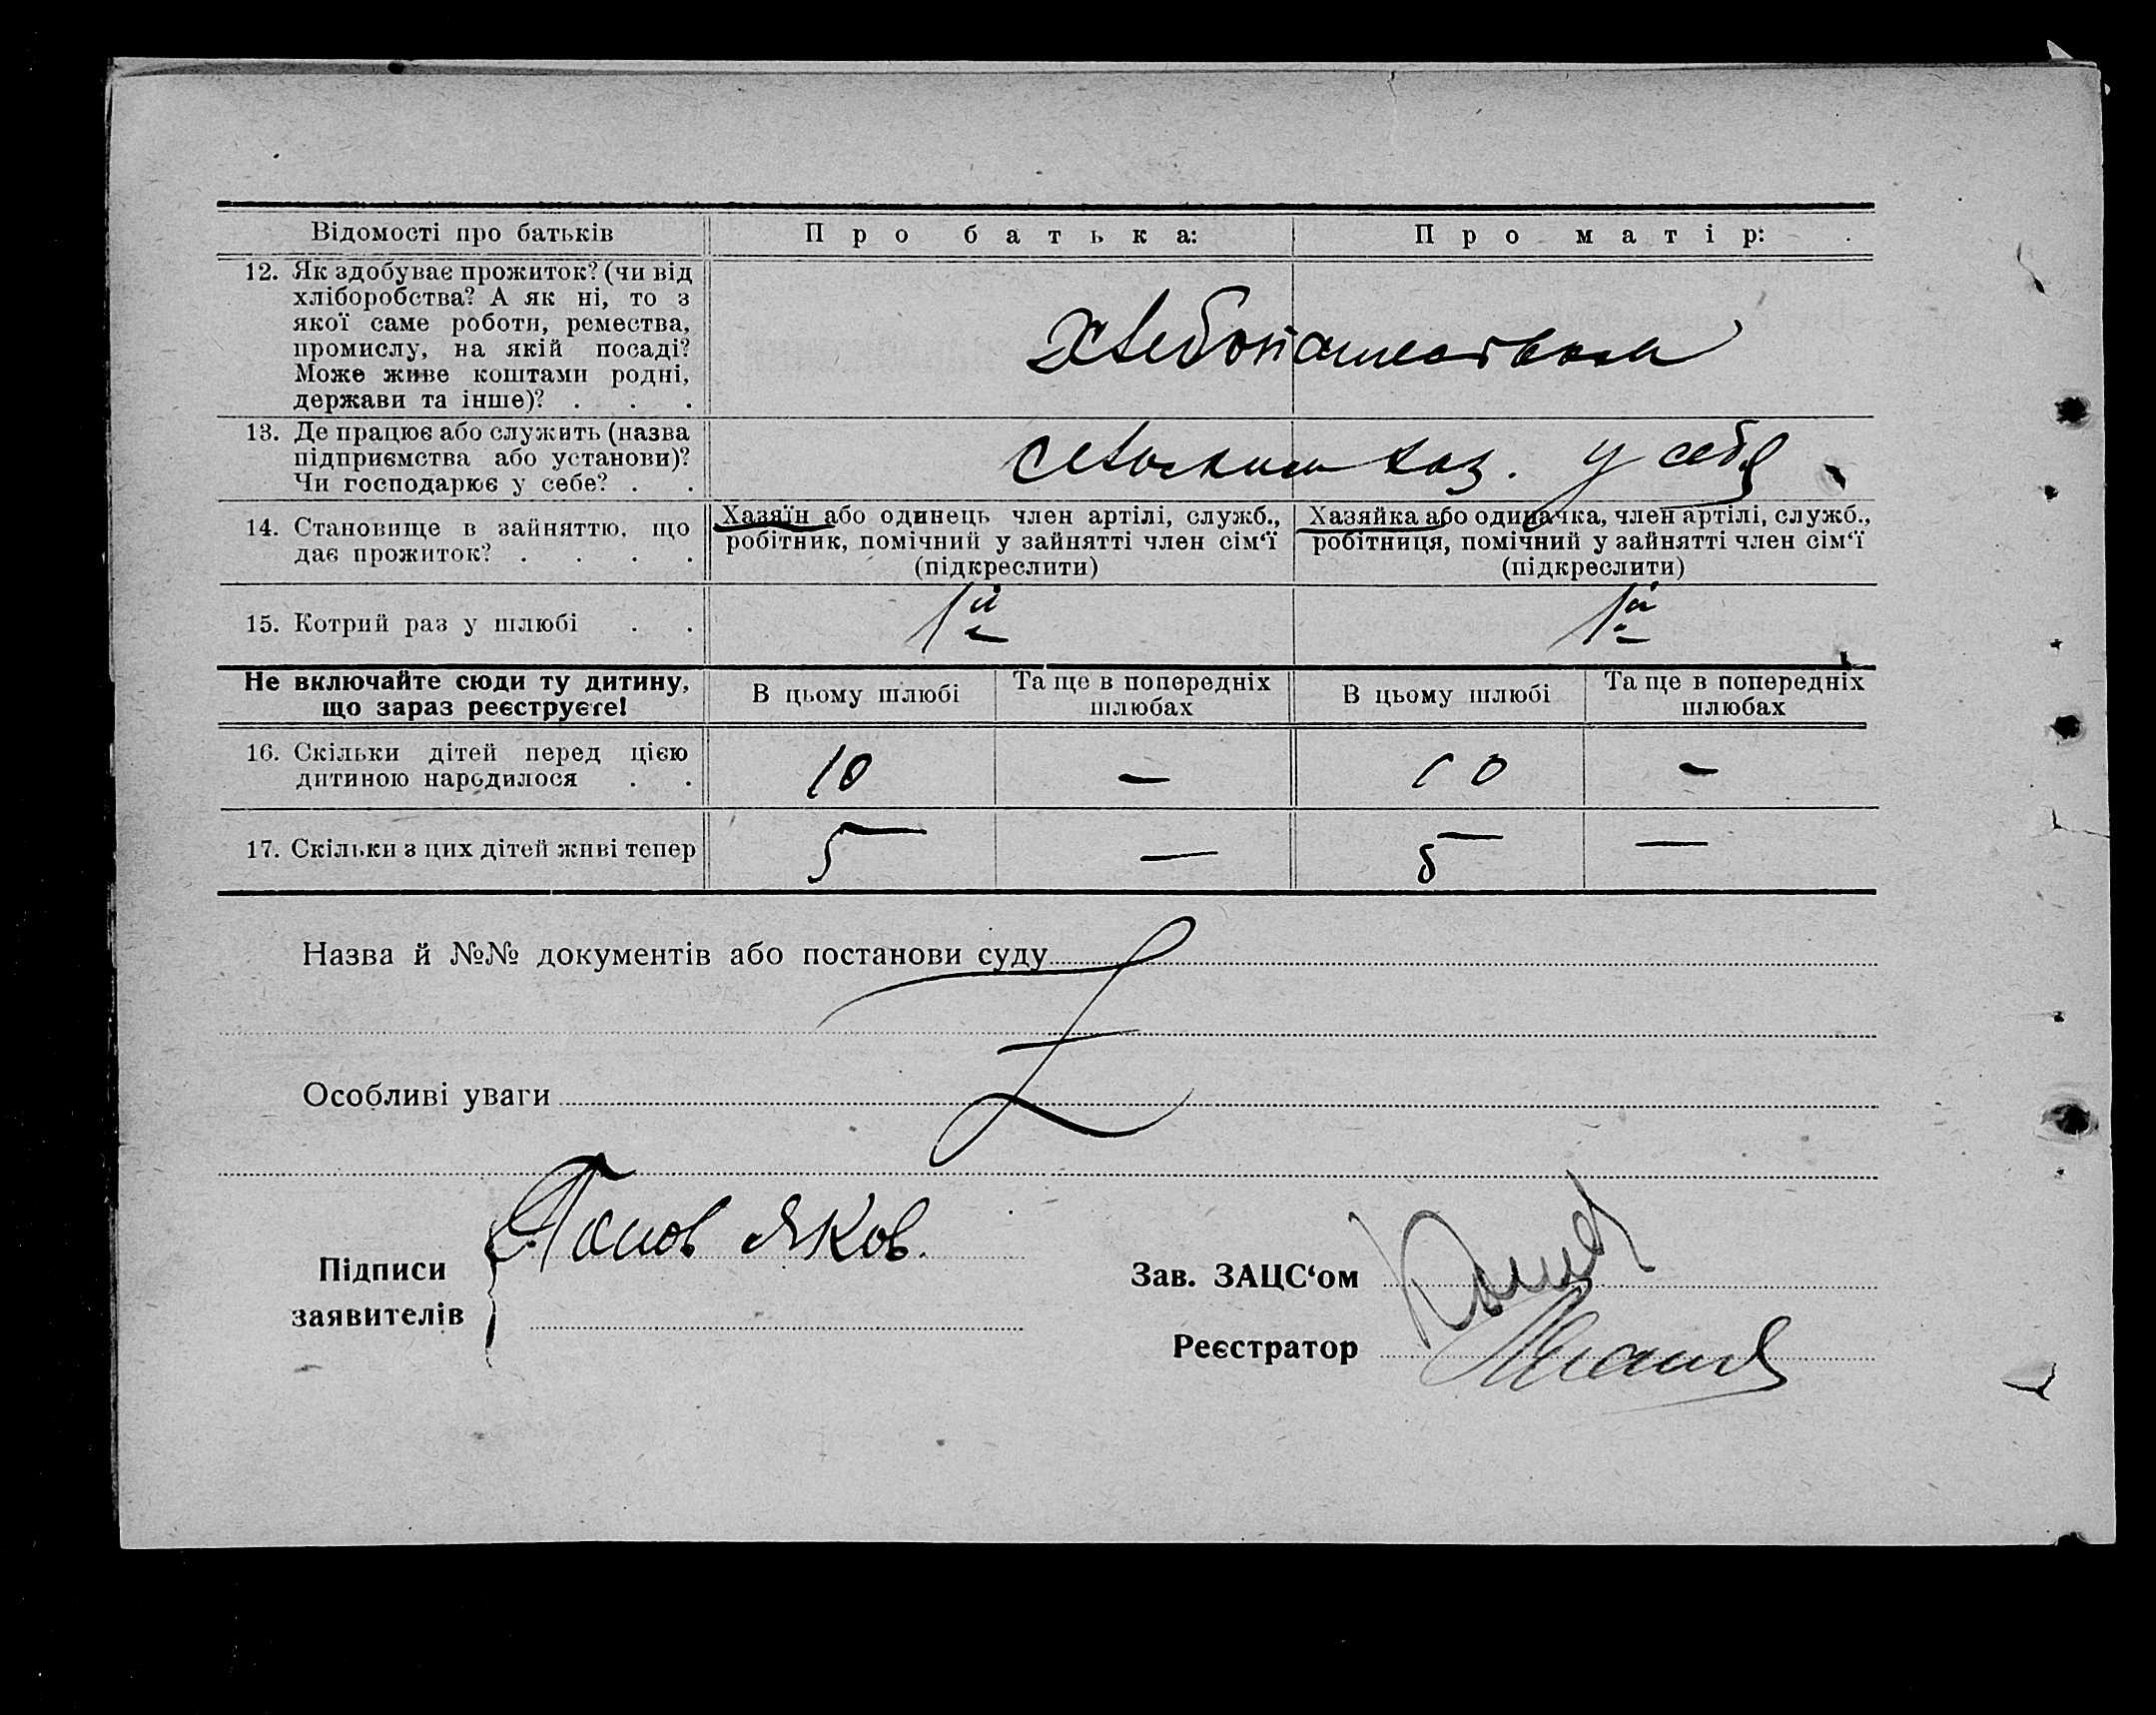 Відомості про батьків
Про батька:
Про матір:
12. Як здобуває прожиток? (чи від
хліборобства? А як ні, то з
якої саме роботи, ремества,
промислу, на якій посаді?
Може живе коштами родні,
держави та інше)? . . .
Хлебопашеством
13. Де працює або служить (назва
підприємства або установи)?
Чи господарює у себе? . .
сельским хоз. у себя
14. Становище в зайняттю, що
дає прожиток? . . . .
Хазяїн або одинець член артілі, служб.,
робітник, помічний у зайнятті член сім'ї
(підкреслити)
Хазяйка або одиначка, член артілі, служб.,
робітниця, помічний у зайнятті член сім'ї
(підкреслити)
15. Котрий раз у шлюбі . .
1й
1й
Не включайте сюди ту дитину,
що зараз реєструєте!
В цьому шлюбі
Та ще в попередніх
шлюбах
В цьому шлюбі
Та ще в попередніх
шлюбах
16. Скільки дітей перед цією
дитиною народилося . .
10
—
10
—
17. Скільки з цих дітей живі тепер
5
—
5
—
Назва й №№ документів або постанови суду
Особливі уваги
Підписи
заявителів
Попов Яков.
Зав. ЗАЦС'ом
Реєстратор